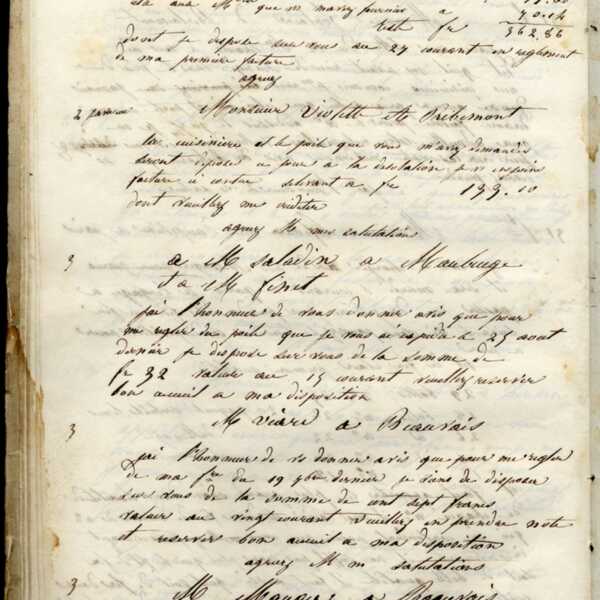 que m'avez fournier a 70.14
reste fr 362.86
dont je dispose sur vous au 27 courant en reglement
de ma premiere facture
agreez
2 Monsieur Violette à Ribemont
la cuisiniere et le poile que vous m'avez demandés
seront deposés ce jour a la destination
facture ci contre fr 133.10
dont veuillez me crediter
agreez M mes salutation
3 a M Saladin a Maubeuge
et a M finet
jai l'honneur de vous donner avis que pour
me regler du poile que je vous ai expidié le 25 aout
dernier je dispose sur vous de la somme de
fr 32 valeur au 15 courant veuillez reserver
bon acceuil a ma disposition
3 M Viare a Beauvais
jai l'honneur de vs donner avis que pour me regler
de ma fre du 19 9bre dernier je viens de disposer
sur vous de la somme de cent sept francs
valeur au vingt courant veuillez en prendre note
et reserver bon acceuil a ma disposition
agreez M m salutations
3 M a Beauvais